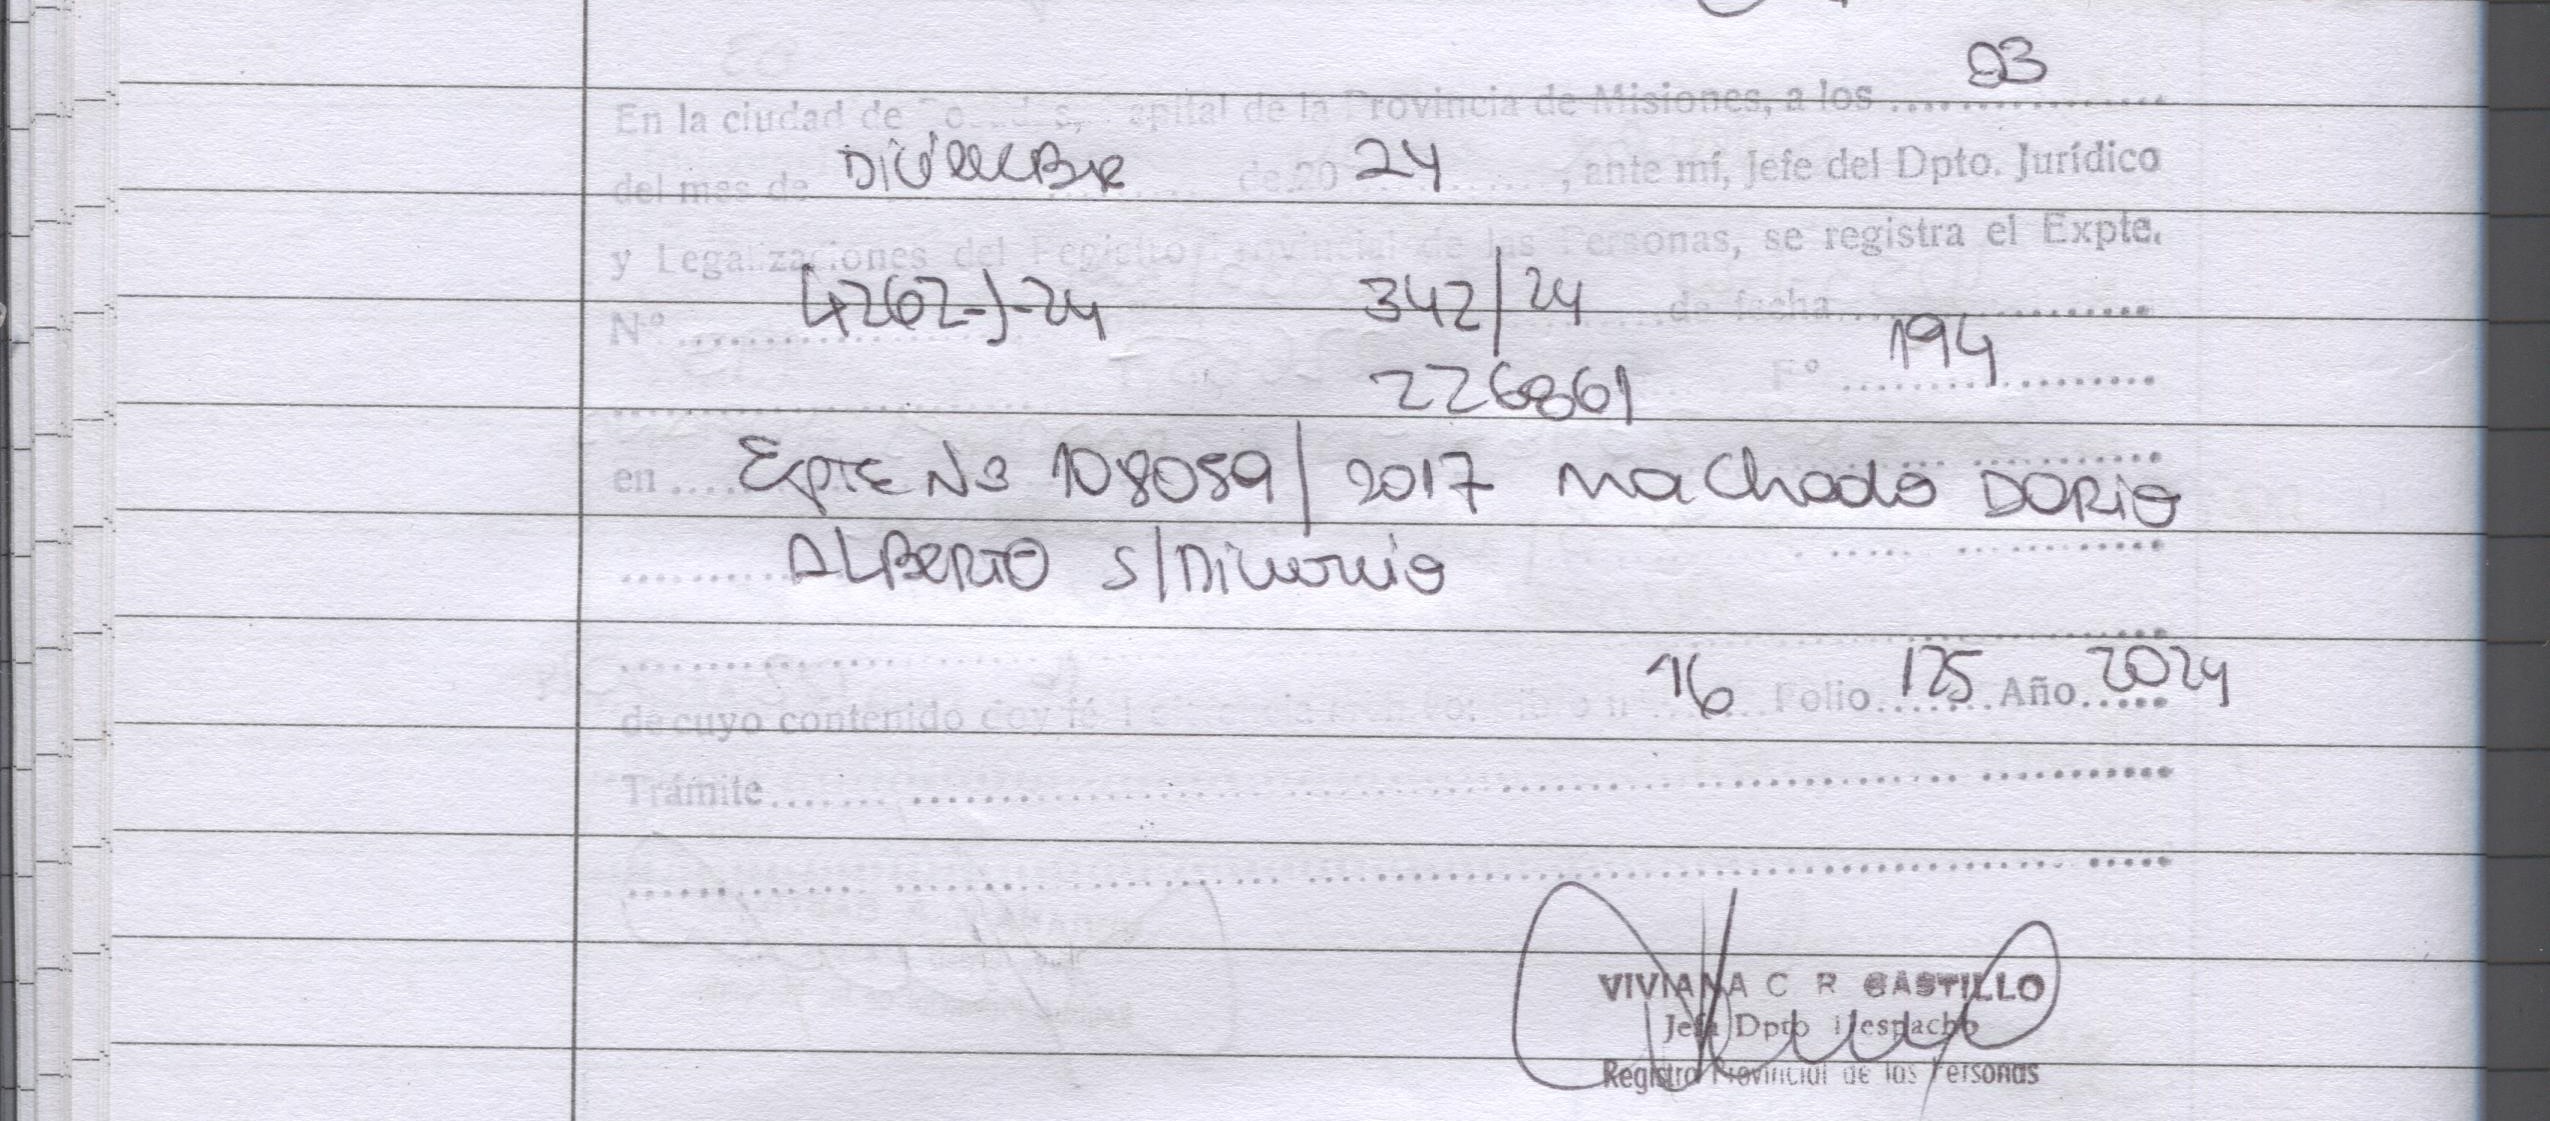 03
En la ciudad de Posadas, Capital de la Provincia de Misiones, a los ....................
del mes de DiCiEMBRE de 20 24 , ante mí, Jefe del Dpto. Jurídico
y Legalizaciones del Registro Provincial de las Personas, se registra el Expte.
Nº 4262-J-24 342/24 de fecha ....................
226861 Fº 194
en ExpTE Nº 108089/2017 Machado DORiO
ALBERTO S/DiVorcio
de cuyo contenido doy fé 16 Folio 125 Año 2024
Trámite ....................
VIVIANA C R CASTILLO
Jefa Dpto Despacho
Registro Provincial de las Personas